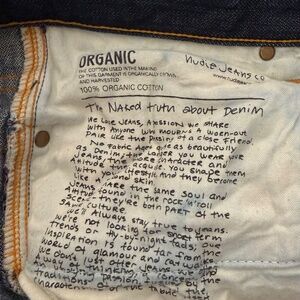 ORGANIC
THE COTTON USED IN THE MAKING
OF THIS GARMENT IS ORGANICALLY GROWN
AND HARVESTED
100% ORGANIC COTTON
Nudie Jeans co
www.nudiejeans
The Naked truth about Denim
We love Jeans, A passion we share
with Anyone who mourns a worn-out
pair like the passing of a close friend.
No Fabric Ages as beautifully
as Denim. The longer you wear your
Jeans the more character and
Attitude they acquire. You shape them
with your lifestyle and they become
like a second skin.
Jeans share the same Soul and
Attitude found in the rock'n'roll
they are both part of the
same culture.
We'll Always stay true to
We're not looking for short term
trends or fly-by-night fads. Our
inspiration is found far from the
world of glamour and catwalks
We don't just offer Jeans. We offer
A way of thinking, a
traditions, the
characteristics of the fabric